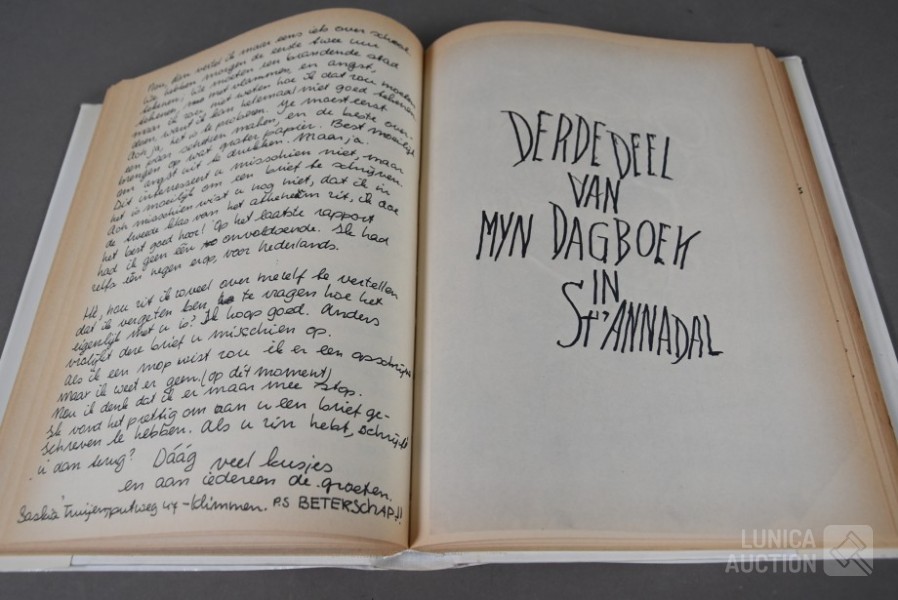 Nou, dan vertel ik maar eens iets over school
We hebben morgen de eerste twee uur
tekenen. We moeten een brandende stad
tekenen, met vlammen, en angst,
maar ik zou niet weten hoe ik dat zou moeten
doen, want ik kan helemaal niet goed tekenen
Ach ja, het is te proberen. Je moest eerst
een paar schetsen maken, en de beste over-
brengen op wat groter papier. Best moeilijk
om angst uit te drukken. Maar ja.
Dit interesseert u misschien niet, maar
het is moeilijk om een brief te schrijven.
Ach misschien wist u nog niet, dat ik in
de tweede klas van het atheneum zit, ik doe
het best goed hoor! Op het laatste rapport
had ik geen één onvoldoende. Ik had
zelfs één negen erop, voor nederlands.
Hè, nou zit ik zoveel over mezelf te vertellen
dat ik vergeten ben, te vragen hoe het
eigenlijk met u is? Ik hoop goed. Anders
vrolijkt deze brief u misschien op.
Als ik een mop wist zou ik er een opschrijven
Maar ik weet er geen. (op dit moment)
Nou ik denk dat ik er maar mee stop.
Ik vond het prettig om aan u een brief ge-
schreven te hebben. Als u zin hebt, schrijft
u dan terug? Dáág veel kusjes
en aan iedereen de groeten.
Saskia Klimmen. P.S BETERSCHAP!!
DERDE DEEL
VAN
MYN DAGBOEK
IN
ST' ANNADAL
LUNICA
AUCTION